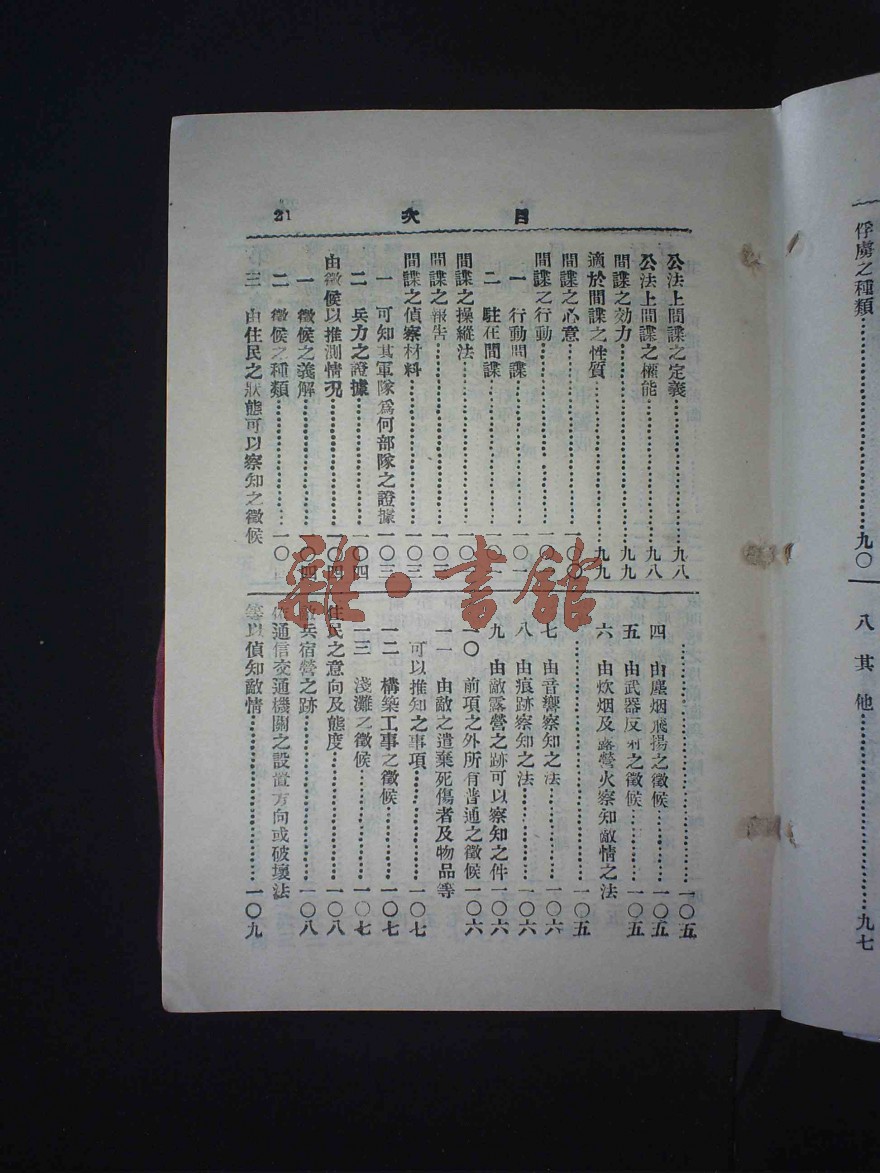 目次 21
公法上間諜之定義……九八
公法上間諜之權能……九八
間諜之効力……九九
適於間諜之性質……九九
間諜之心意……一〇〇
間諜之行動……一〇一
一 行動間諜……一〇一
二 駐在間諜……一〇
間諜之操縱法……一〇
間諜之報告……一〇三
間諜之偵察材料……一〇三
一 可知其軍隊爲何部隊之證據……一〇三
二 兵力之證據……一〇四
由徵候以推測情况……一〇四
一 徵候之義解……一〇四
二 徵候之種類……一〇
三 由住民之狀態可以察知之徵候
……一〇五
四 由塵烟飛揚之徵候……一〇五
五 由武器反射之徵候……一〇五
六 由炊烟及露營火察知敵情之法
……一〇五
七 由音響察知之法……一〇六
八 由痕跡察知之法……一〇六
九 由敵露營之跡可以察知之件 一〇六
一〇 前項之外所有普通之徵候 一〇六
一一 由敵之遺棄死傷者及物品等
可以推知之事項……一〇七
一二 構築工事之徵候……一〇七
一三 淺灘之徵候……一〇七
住民之意向及態度……一〇八
兵宿營之跡……一〇八
通信交通機關之設置方向或破壞法
等以偵知敵情……一〇九
俘虜之種類……九〇
八 其他……九七
雜·書館